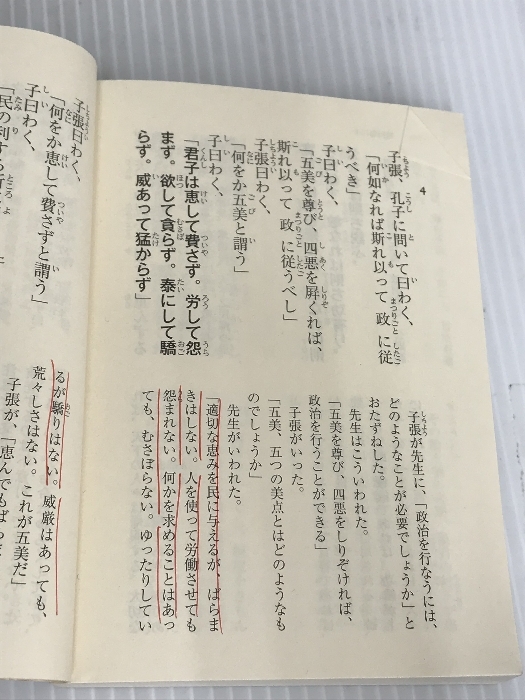 4
子張、孔子に問いて曰わく、
「何如なれば斯れ以って政に従
うべき」
子曰わく、
「五美を尊び、四悪を屛くれば、
斯れ以って政に従うべし」
子張曰わく、
「何をか五美と謂う」
子曰わく、
「君子は恵して費さず。労して怨
まず。欲して貪らず。泰にして驕
らず。威あって猛からず」
子張が先生に、「政治を行なうには、
どのようなことが必要でしょうか」と
おたずねした。
先生はこういわれた。
「五美を尊び、四悪をしりぞければ、
政治を行うことができる」
子張がいった。
「五美、五つの美点とはどのようなも
のでしょうか」
先生がいわれた。
「適切な恵みを民に与えるが、ばらま
きはしない。人を使って労働させても
怨まれない。何かを求めることはあっ
ても、むさぼらない。ゆったりしてい
子張曰わく、
「何をか恵して費さずと謂う」
子曰わく、
「民の利する
るが驕りはない。威厳はあっても、
荒々しさはない。これが五美だ」
子張が、「恵んでもば